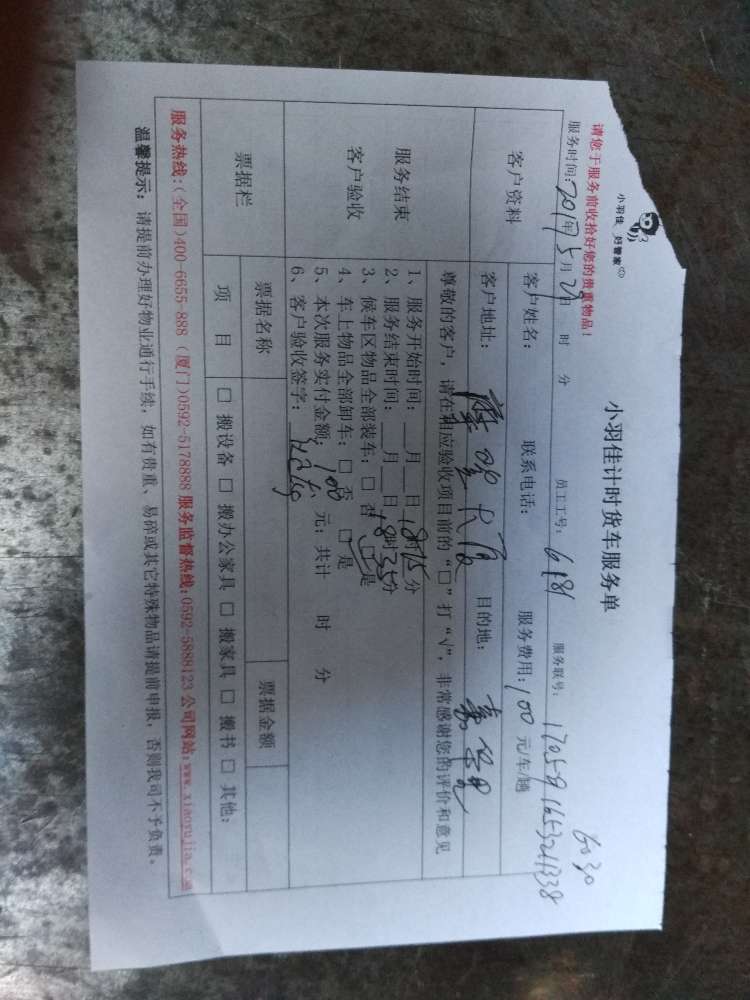 小羽佳 好管家
小羽佳计时货车服务单
6030
请您于服务前收拾好您的贵重物品！
服务时间：2017年5月29日 时 分 员工工号：6181 服务联号：
客户资料 客户姓名： 联系电话： 服务费用：100元/车/趟
客户地址： 目的地：
服务结束 客户验收
尊敬的客户，请在相应验收项目前的“□”打“√”，非常感谢您的评价和意见
1、服务开始时间：__月__日18时15分
2、服务结束时间：__月__日18时35分
3、候车区物品全部装车：□ 否 □ 是
4、车上物品全部卸车：□ 否 □ 是
5、本次服务实付金额：100元；共计 时 分
6、客户验收签字：
票据栏 票据名称 票据金额
项 目 □ 搬设备 □ 搬办公家具 □ 搬家具 □ 搬书 □ 其他：
服务热线：（全国）400-6655-888（厦门）0592-5178888 服务监督热线：0592-5888123 公司网站：www.xiaoyujia.com
温馨提示：请提前办理好物业通行手续，如有贵重、易碎或其它特殊物品请提前申报，否则我司不予负责。